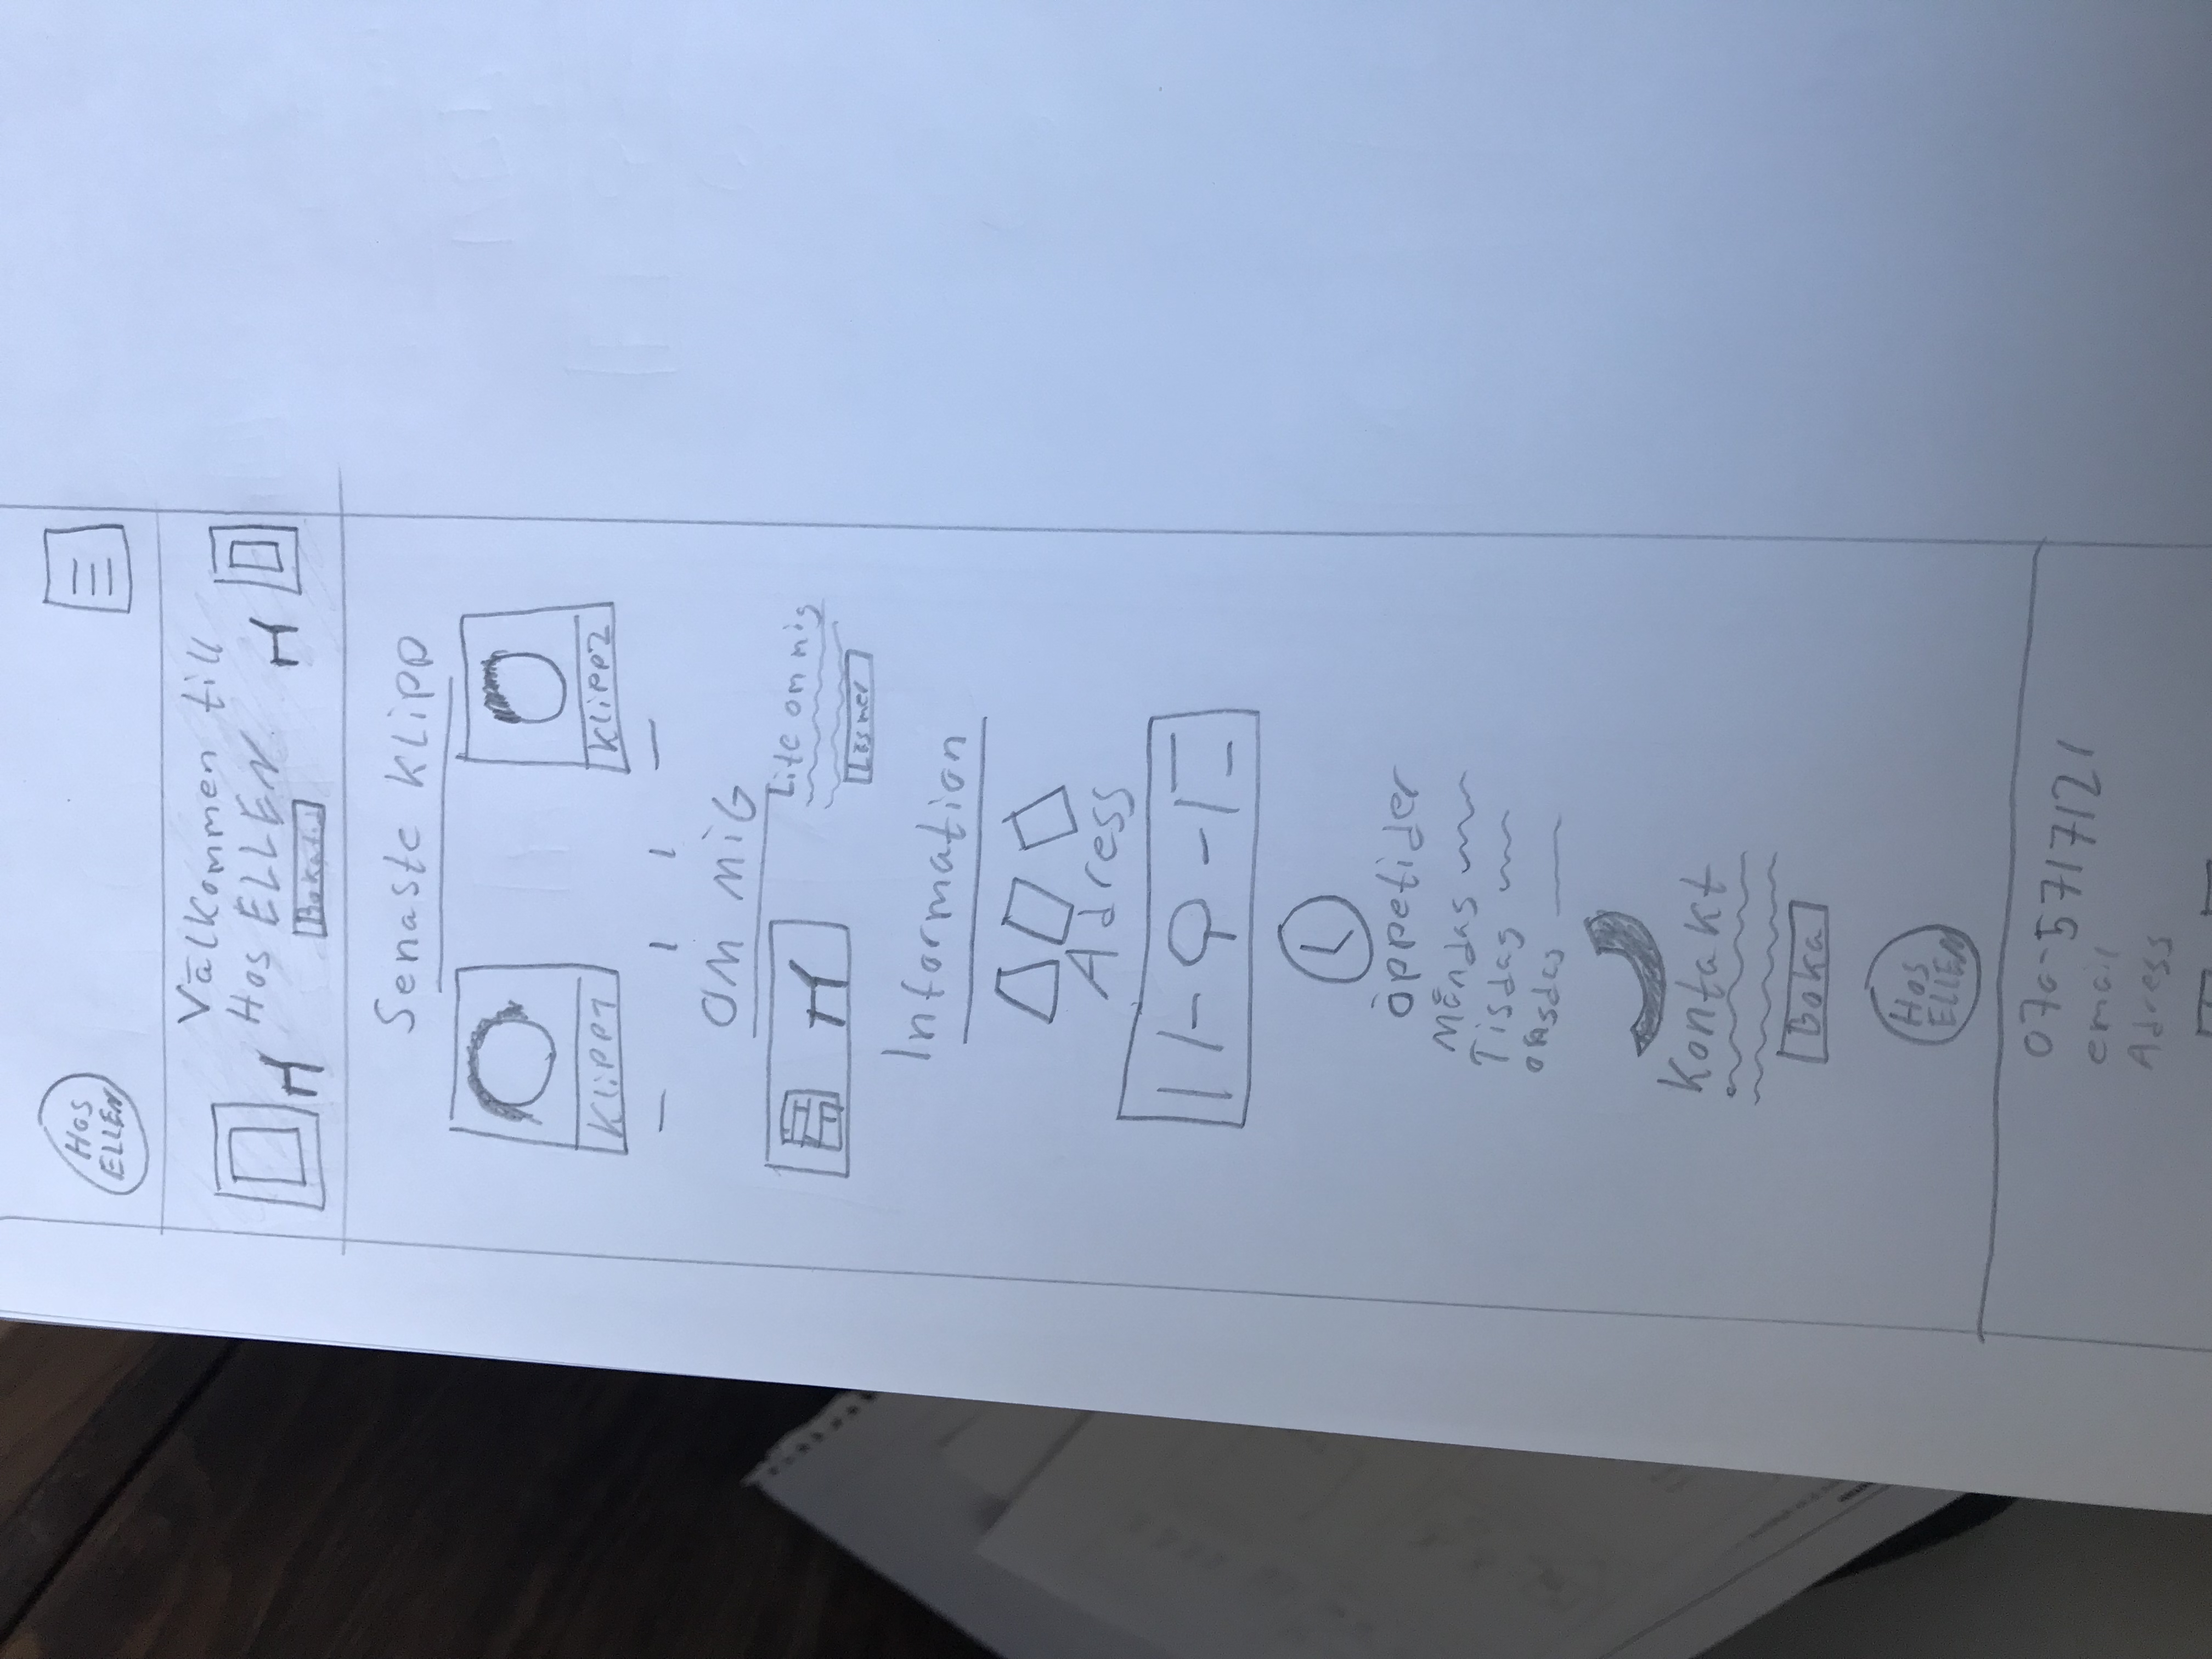 Hos
ELLEN
Välkommen till
Hos ELLEN
Boka tid
Senaste KLipp
KLipp1
KLipp2
OM MiG
Lite om mig
Läs mer
Information
Adress
öppetider
Måndag
Tisdag
onsdag
Kontakt
Boka
Hos
ELLEN
070-5717121
email
Adress